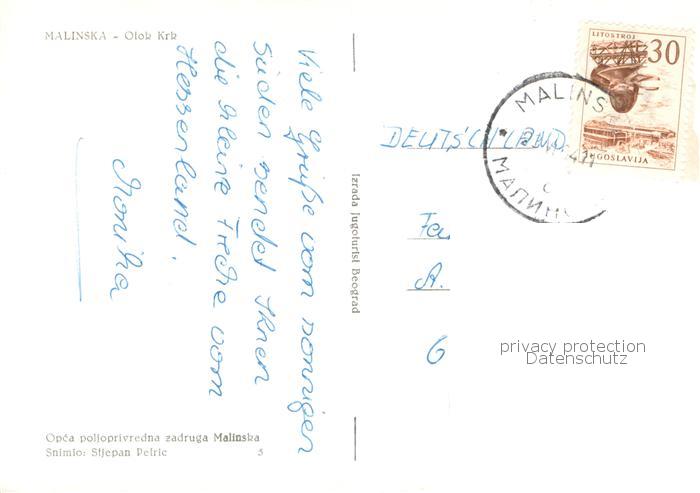 MALINSKA - Otok Krk
Viele Grüße vom sonnigen
Süden sendet Ihnen
die kleine Fredre vom
Hessenland.
Monika
Opća poljoprivredna zadruga Malinska
Snimio: Stjepan Petric 5
Izrada Jugoturist Beograd
LITOSTROJ
30
JUGOSLAVIJA
MALINS
МАЛИН
DEUTSCHLAND
Fa
A.
6
privacy protection
Datenschutz